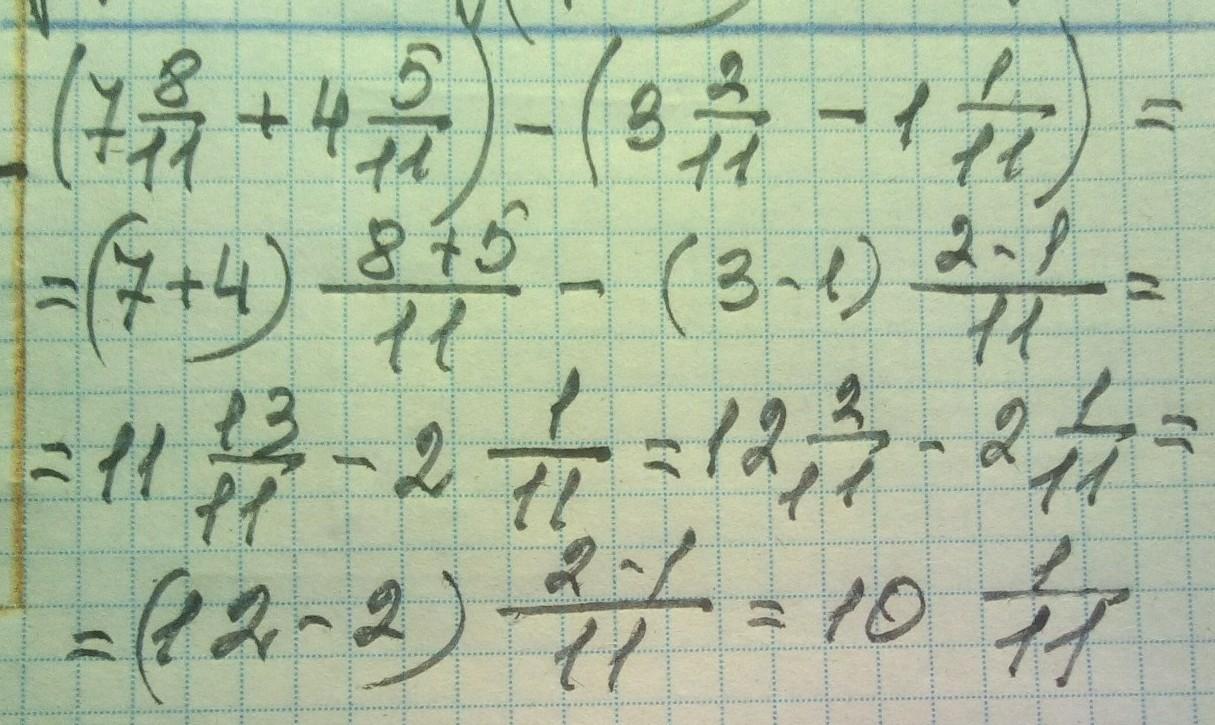 (7 8/11 + 4 5/11) - (3 2/11 - 1 1/11) =
= (7+4) 8+5/11 - (3-1) 2-1/11 =
= 11 13/11 - 2 1/11 = 12 2/11 - 2 1/11 =
= (12-2) 2-1/11 = 10 1/11